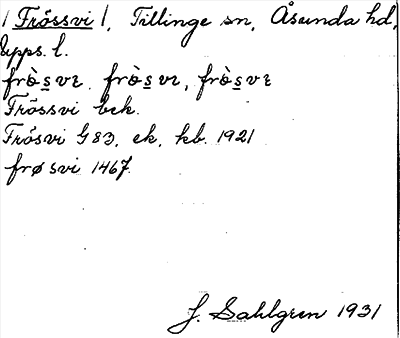 / Frössvi /, Tillinge sn, Åsunda hd,
Upps. l.
frö̀s̲vɛ, frö̀s̲vɩ, frö̀s̲vɛ
Frössvi bek.
Frösvi G 83, ek, kb. 1921
frøsvi 1467.
J. Sahlgren 1931